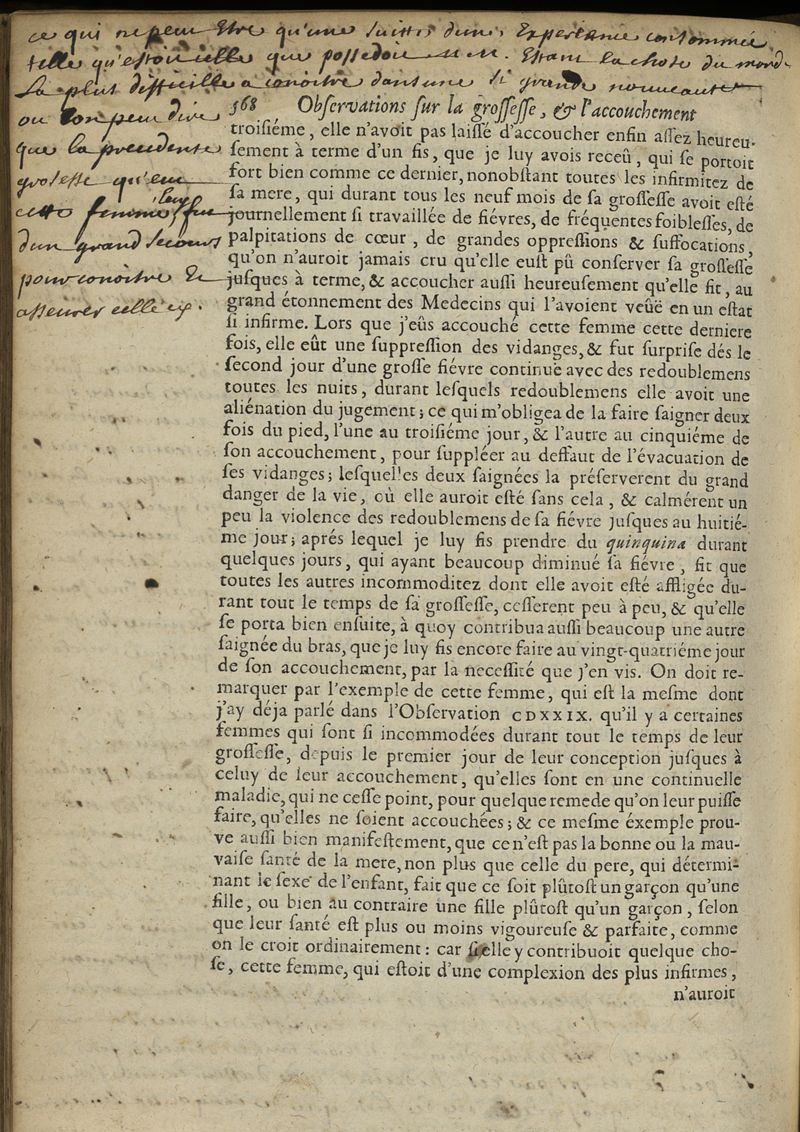 ce qui ne peut Etre qu'une suitte d'une Experiance consommée
telle qu'estoit celle que possedoit m m. Estant la chose du monde
la plus difficille a conoitre dans une si grande nouveauté
ou l'on peut dire
que la precedente
grosesse qu'eut
cette femme fut
leur
d'un grand secours
pour conoitre &
asseurer celle cy.
568 Observations sur la grossesse, & l'accouchement
troisiéme, elle n'avoit pas laissé d'accoucher enfin assez heureu-
sement à terme d'un fis, que je luy avois receû, qui se portoit
fort bien comme ce dernier, nonobstant toutes les infirmitez de
sa mere, qui durant tous les neuf mois de sa grossesse avoit esté
journellement si travaillée de fiévres, de fréquentes foiblesses, de
palpitations de cœur, de grandes oppressions & suffocations,
qu'on n'auroit jamais cru qu'elle eust pû conserver sa grossesse
jusques à terme, & accoucher aussi heureusement qu'elle fit, au
grand étonnement des Medecins qui l'avoient veûë en un estat
si infirme. Lors que j'eûs accouché cette femme cette derniere
fois, elle eût une suppression des vidanges, & fut surprise dés le
second jour d'une grosse fiévre continuë avec des redoublemens
toutes les nuits, durant lesquels redoublemens elle avoit une
aliénation du jugement; ce qui m'obligea de la faire saigner deux
fois du pied, l'une au troisiéme jour, & l'autre au cinquiéme de
son accouchement, pour suppléer au deffaut de l'évacuation de
ses vidanges; lesquelles deux saignées la préserverent du grand
danger de la vie, où elle auroit esté sans cela, & calmérent un
peu la violence des redoublemens de sa fiévre jusques au huitié-
me jour; aprés lequel je luy fis prendre du quinquina durant
quelques jours, qui ayant beaucoup diminué sa fiévre, fit que
toutes les autres incommoditez dont elle avoit esté affligée du-
rant tout le temps de sa grossesse, cesserent peu à peu, & qu'elle
se porta bien ensuite, à quoy contribua aussi beaucoup une autre
saignée du bras, que je luy fis encore faire au vingt-quatriéme jour
de son accouchement, par la necessité que j'en vis. On doit re-
marquer par l'exemple de cette femme, qui est la mesme dont
j'ay déja parlé dans l'Observation CDXXIX. qu'il y a certaines
femmes qui sont si incommodées durant tout le temps de leur
grossesse, depuis le premier jour de leur conception jusques à
celuy de leur accouchement, qu'elles sont en une continuelle
maladie, qui ne cesse point, pour quelque remede qu'on leur puisse
faire, qu'elles ne soient accouchées; & ce mesme éxemple prou-
ve aussi bien manifestement, que ce n'est pas la bonne ou la mau-
vaise santé de la mere, non plus que celle du pere, qui détermi-
nant le sexe de l'enfant, fait que ce soit plûtost un garçon qu'une
fille, ou bien au contraire une fille plûtost qu'un garçon, selon
que leur santé est plus ou moins vigoureuse & parfaite, comme
on le croit ordinairement: car si elle y contribuoit quelque cho-
se, cette femme, qui estoit d'une complexion des plus infirmes,
n'auroit